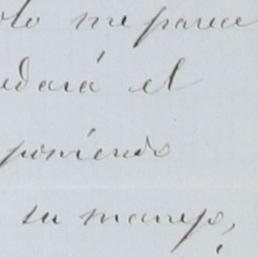 olo me parece
edará el
poniendo
su manejo,